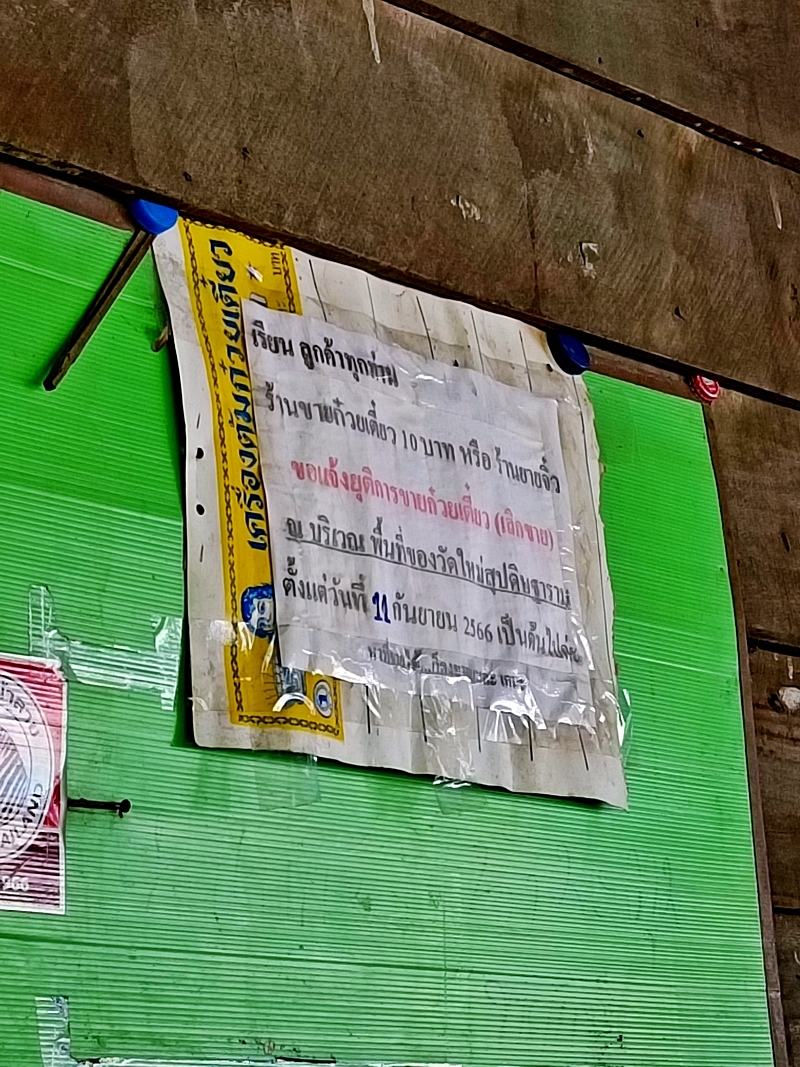 เครื่องต้มก๋วยเตี๋ยว
บาท
เรียน ลูกค้าทุกท่าน
ร้านขายก๋วยเตี๋ยว 10 บาท หรือ ร้านยายจิ๋ว
ขอแจ้งยุติการขายก๋วยเตี๋ยว (เลิกขาย)
ณ บริเวณ พื้นที่ของวัดใหม่สุปดิษฐาราม
ตั้งแต่วันที่ 11 กันยายน 2566 เป็นต้นไปค่ะ